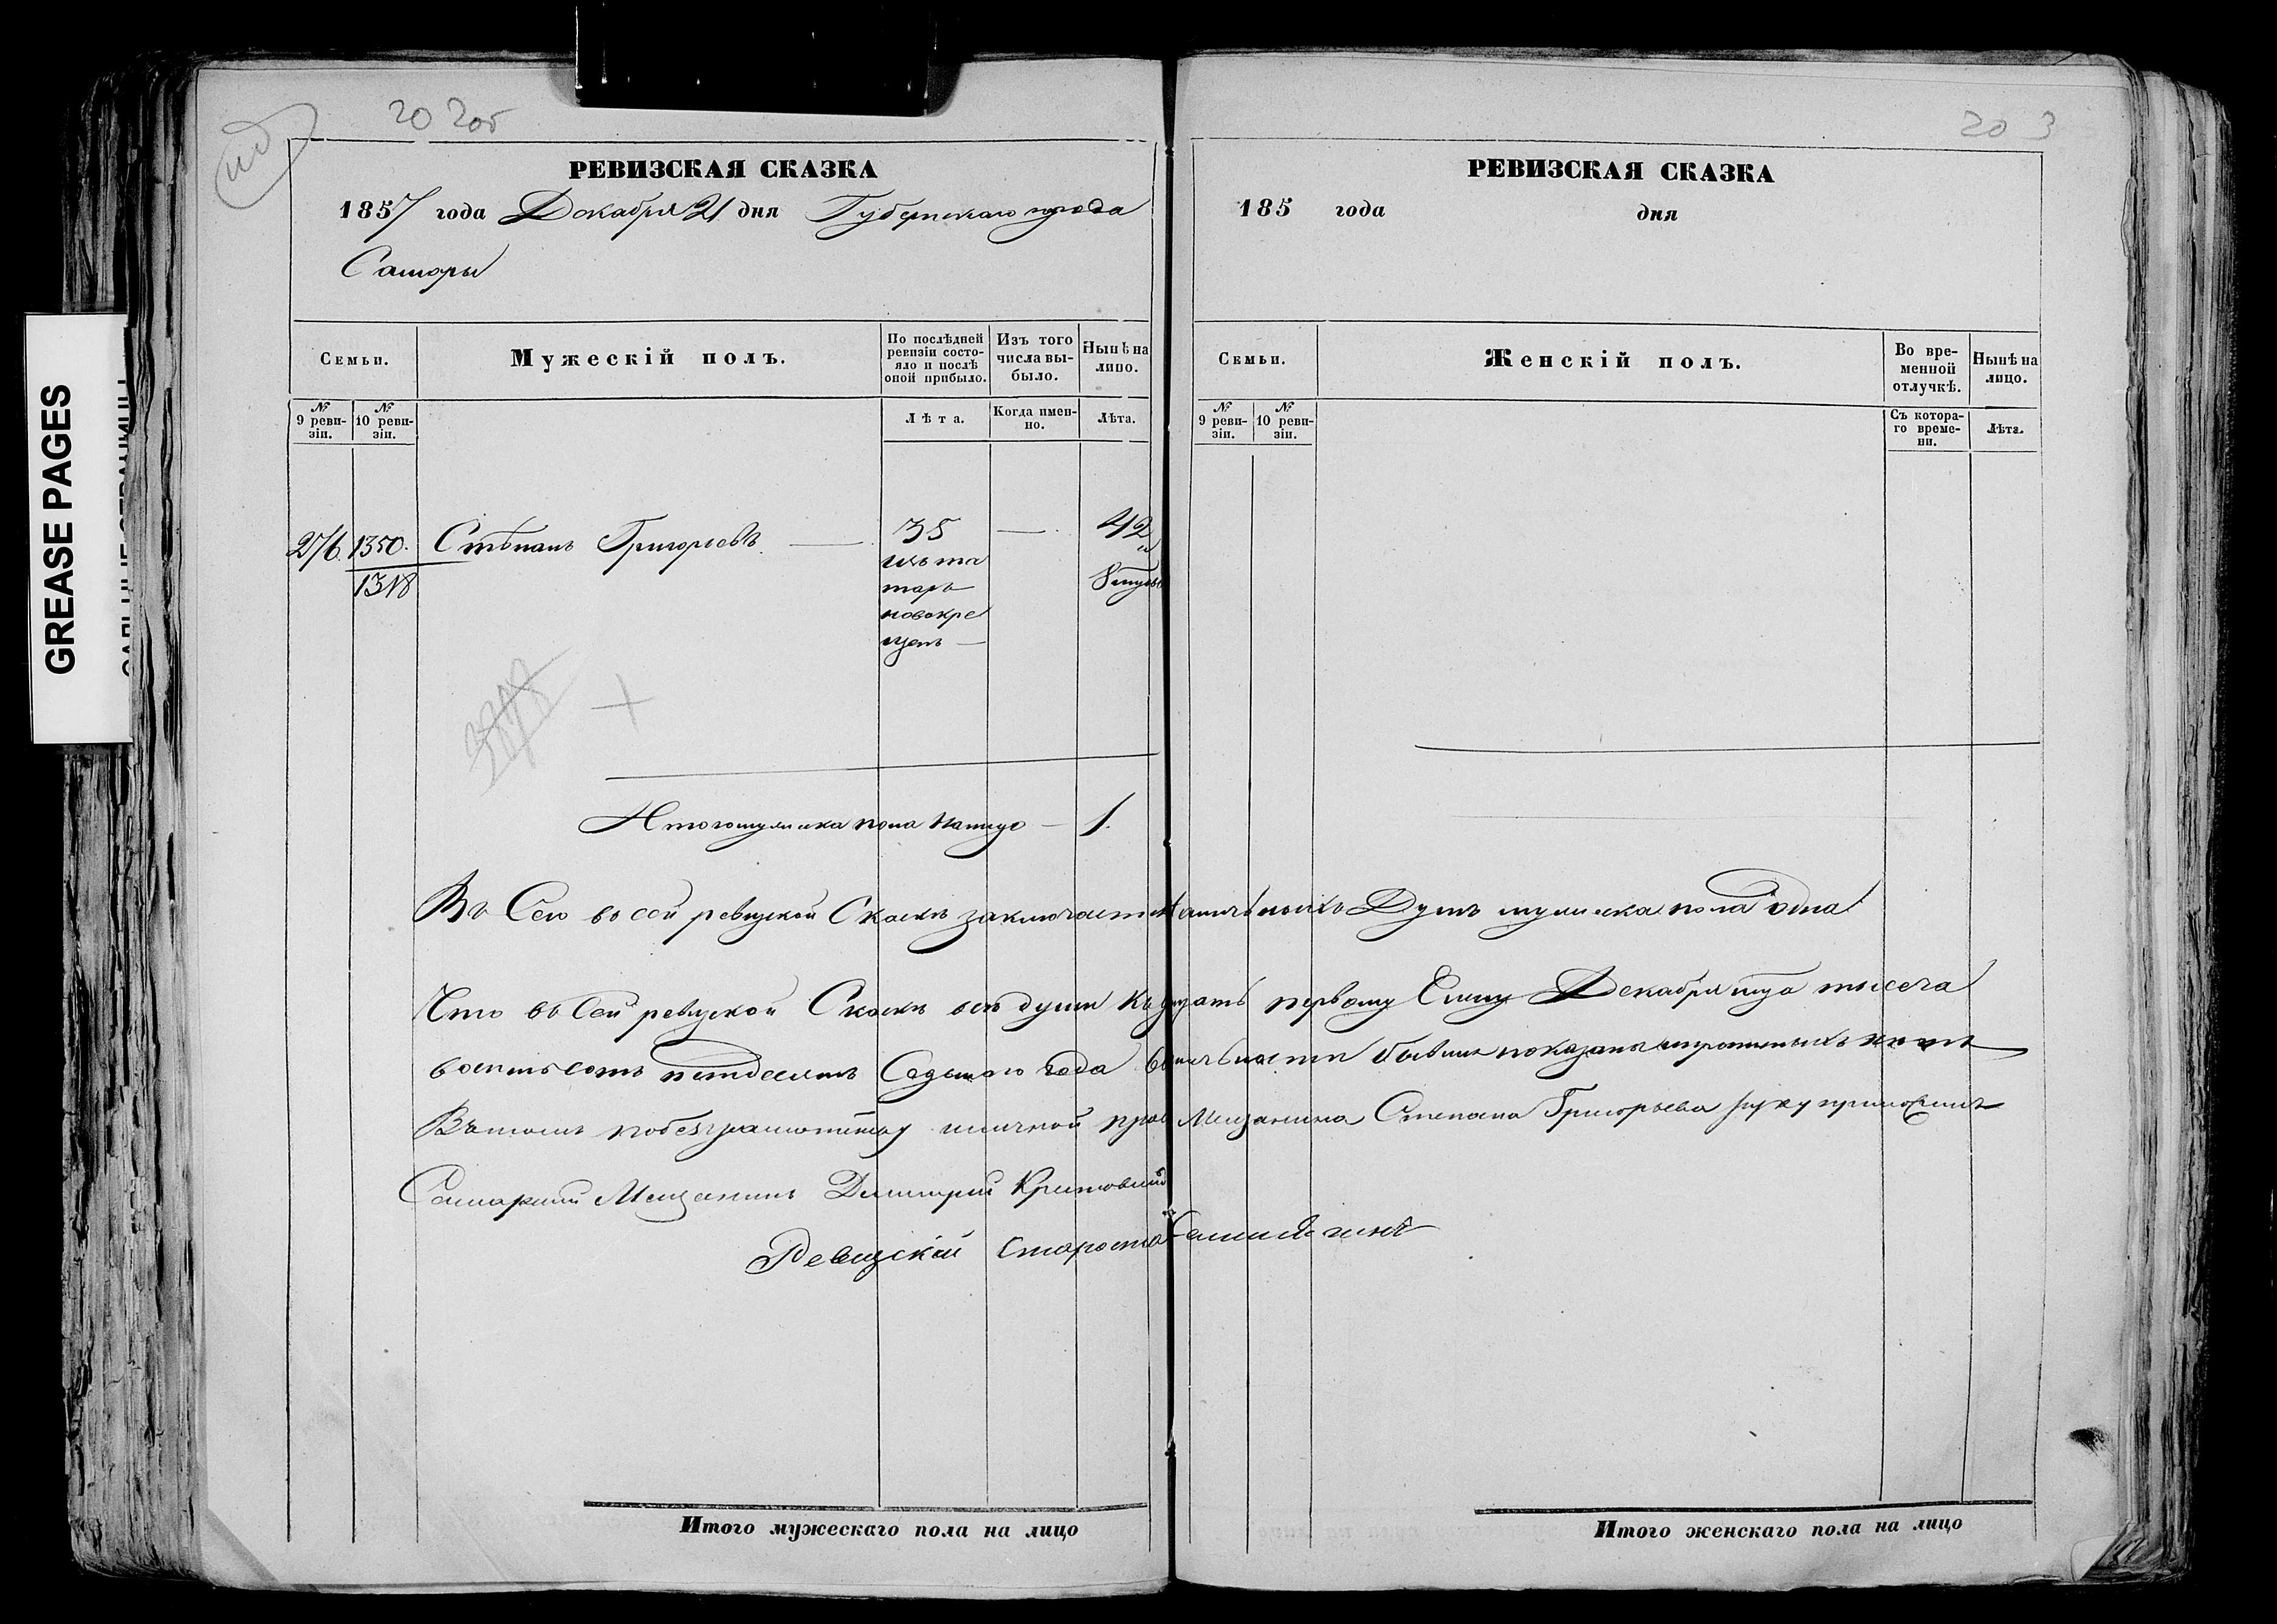 GREASE PAGES
20 2об
РЕВИЗСКАЯ СКАЗКА
1857 года Декабря 21 дня Губернскаго города
Самары
Семьи.
Мужескій полъ.
По послѣдней ревизіи состояло и послѣ оной прибыло.
Изъ того числа выбыло.
Нынѣ на лицо.
№ 9 ревизіи.
№ 10 ревизіи.
Лѣта.
Когда именно.
Лѣта.
276. 1350. Степанъ Григорьевъ. — 35 — 42
1318
изъ та
таръ
новокре
щенъ —
Итого мужеска пола налицо — 1.
20 3
РЕВИЗСКАЯ СКАЗКА
185 года дня
Семьи.
Женскій полъ.
Во временной отлучкѣ.
Нынѣ на лицо.
№ 9 ревизіи.
№ 10 ревизіи.
Съ котораго времени.
Лѣта.
сей ревизской Сказкѣ заключается наличныхъ Душъ мужеска пола одна
Что въ сей ревизской Сказкѣ всѣ души къ двадцать первому Числу Декабря тысеча
восемьсотъ пятдесятъ Седьмого года въ наличности бывшия показаны и прописныхъ нѣтъ
Въ томъ по безграмотству и личной прозбѣ Мещанина Степана Григорьева руку приложилъ
Самарский Мещанинъ Димитрий
Ревизский Староста
Итого мужескаго пола на лицо
Итого женскаго пола на лицо